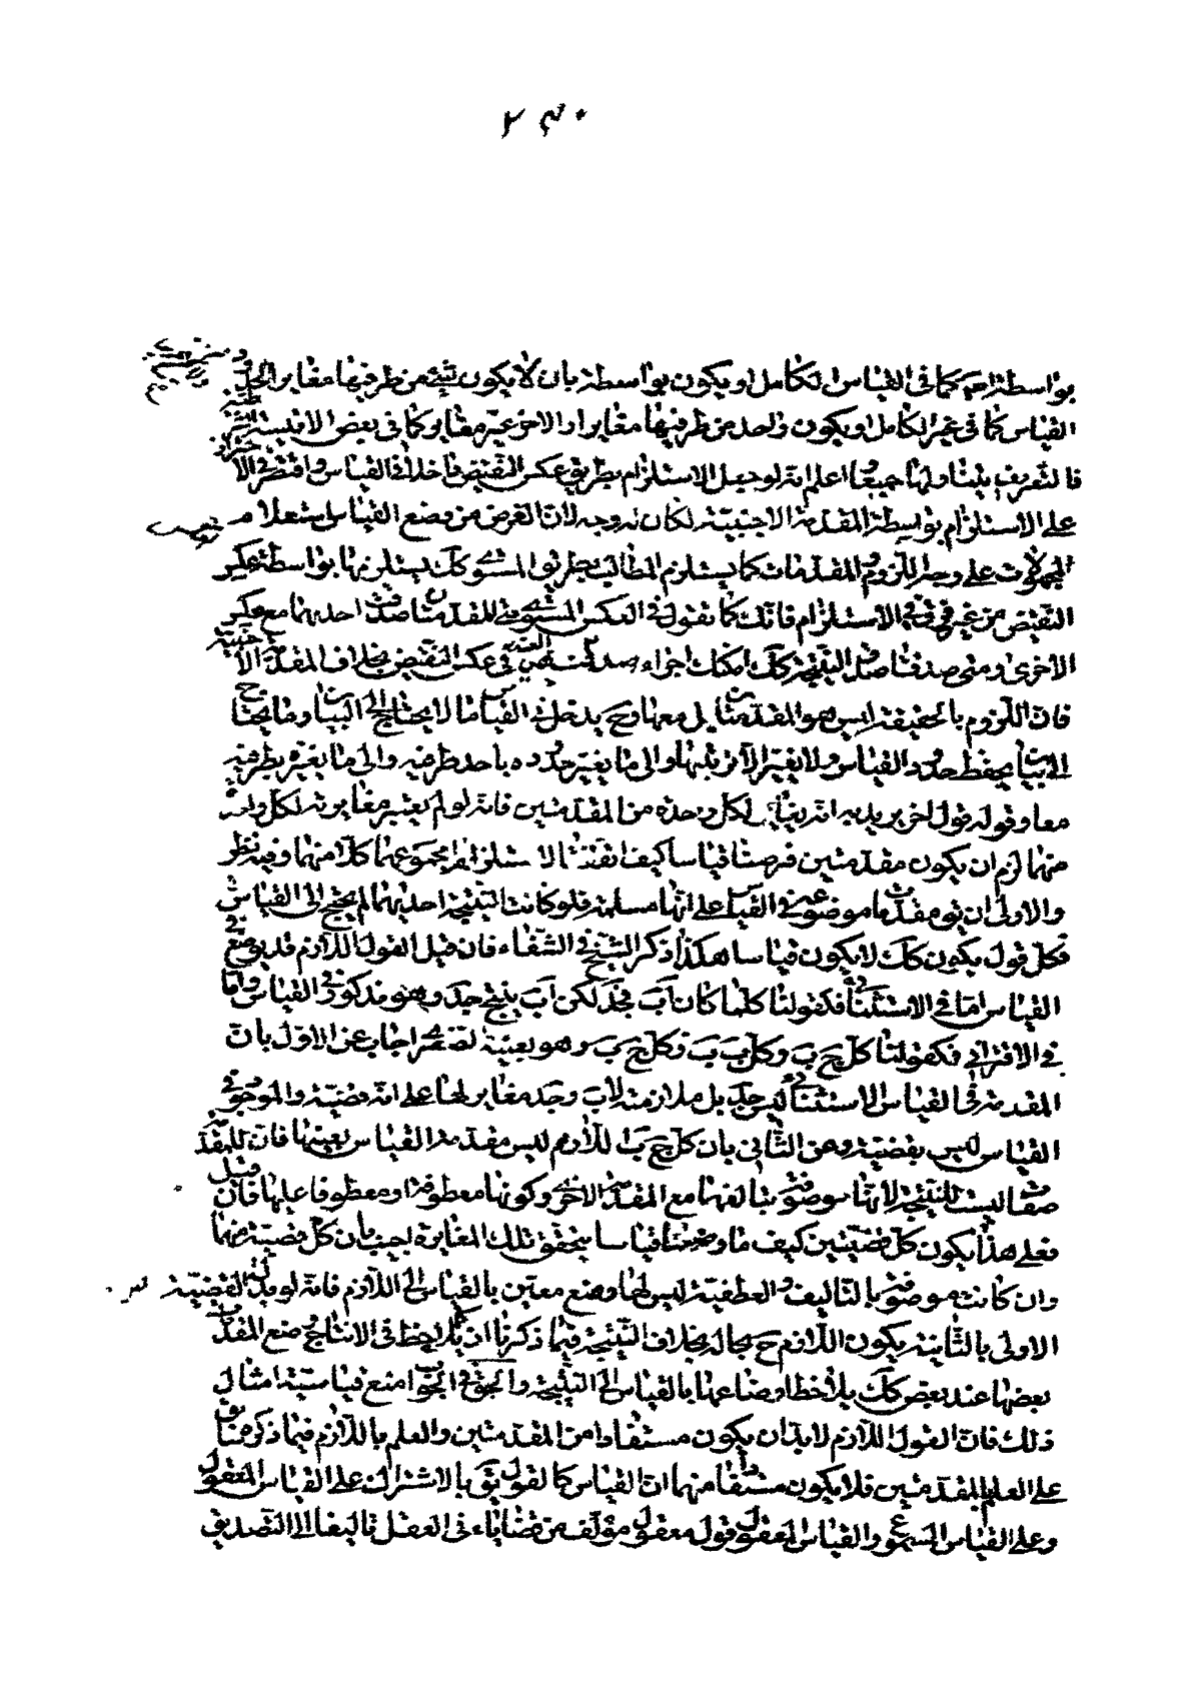 ٢٤٠
بواسطة اما كما في القياس الكامل او يكون بواسطة بان لا يكون شئ من طرفيها مغايرا لحدود
القياس كما في غير الكامل او يكون واحد من طرفيها مغايرا والاخر غير مغاير كما في بعض الاقيسة الشرطية
فالتعريف يتناولها جميعا واعلم انه لو جعل الاستلزام بطريق عكس النقيض داخلا في القياس واقتصر في الاحتراز
على الاستلزام بواسطة المقدمة الاجنبية لكان له وجه لان الغرض من وضع القياس استعلام
المجهولات على وجه اللزوم والمقدمات كما يستلزم المطالب بطريق المستوى كك يستلزمها بواسطة عكس
النقيض من غير فرق في الاستلزام فانك كما تقول في العكس المستوى متى صدق المقدمتان صدقت احديهما مع عكس
الاخرى ومتى صدقتا صدق النتيجة كك امكنك اجراء هذه في عكس النقيض بخلاف المقدمة الاجنبية
فان اللزوم بالحقيقة ليس هو المقدمتان بل معها وح يدخل في القياس ما لا يحتاج الى البيان وما يحتاج
الى البيان يحفظ حدود القياس ولا يغير الا ترتيبها والى ما يغير حدوده باحد طرفيه والى ما يغير بطرفيه
معا وقوله قول اخر يريد به انه يغاير لكل واحدة من المقدمتين فانه لو لم يعتبر مغايرته لكل واحدة
منهما لزم ان يكون مقدمتين فرضتا قياسا كيف اتفقتا لاستلزام مجموعهما كلا منهما وفيه نظر
والاولى ان يق مقدمات موضوعة في القياس على انها مسلمة فلو كانت النتيجة احديهما لم يحتج الى القياس
فكل قول يكون كك لا يكون قياسا هكذا ذكر الشيخ في الشفاء فان قيل القول اللازم قد يوضع في
القياس اما في الاستثنائية فكقولنا كلما كان اب فجد لكن اب ينتج جد وهو مذكور في القياس واما
في الاقتراني فكقولنا كل ج ب وكل ب ب فكل ج ب وهو بعينه الصغرى اجاب عن الاول بان
المقدمة في القياس الاستثنائي ليس جد بل ملازمته لاب وجد مغاير لها على انه قضية والموجود في
القياس ليس بقضية وعن الثاني بان كل ج ب اللازم ليس مقدمة القياس بعينها فان للمقدمة
صفة ليست للنتيجة لانها موصوفة بتالفها مع المقدمة الاخرى وكونها معطوفة او معطوفا عليها فان قيل
فعلى هذا يكون كل قضيتين كيف ما وضعنا قياسا يتحقق تلك المغايرة اجيب بان كل قضية منهما
وان كانت موصوفة بالتاليف والعطفية ليس لها وضع معين بالقياس الى اللازم فانه لو بدلت القضية
الاولى بالثانية يكون اللازم ح بحاله بخلاف النتيجة فيما ذكرنا اذ يلاحظ في الانتاج وضع المقدمات
بعضها عند بعض كك يلاحظ اوضاعها بالقياس الى النتيجة والحق في الجواب منع قياسية امثال
ذلك فان القول اللازم لا بد ان يكون مستفادا من المقدمتين والعلم باللازم فيما ذكر سابق
على العلم بالمقدمتين فلا يكون مستفادا منهما ان القياس كالقول يق بالاشتراك على القياس المعقول
وعلى القياس المسموع والقياس المعقول قول معقول مؤلف من قضايا في العقل تاليفا الى التصديق